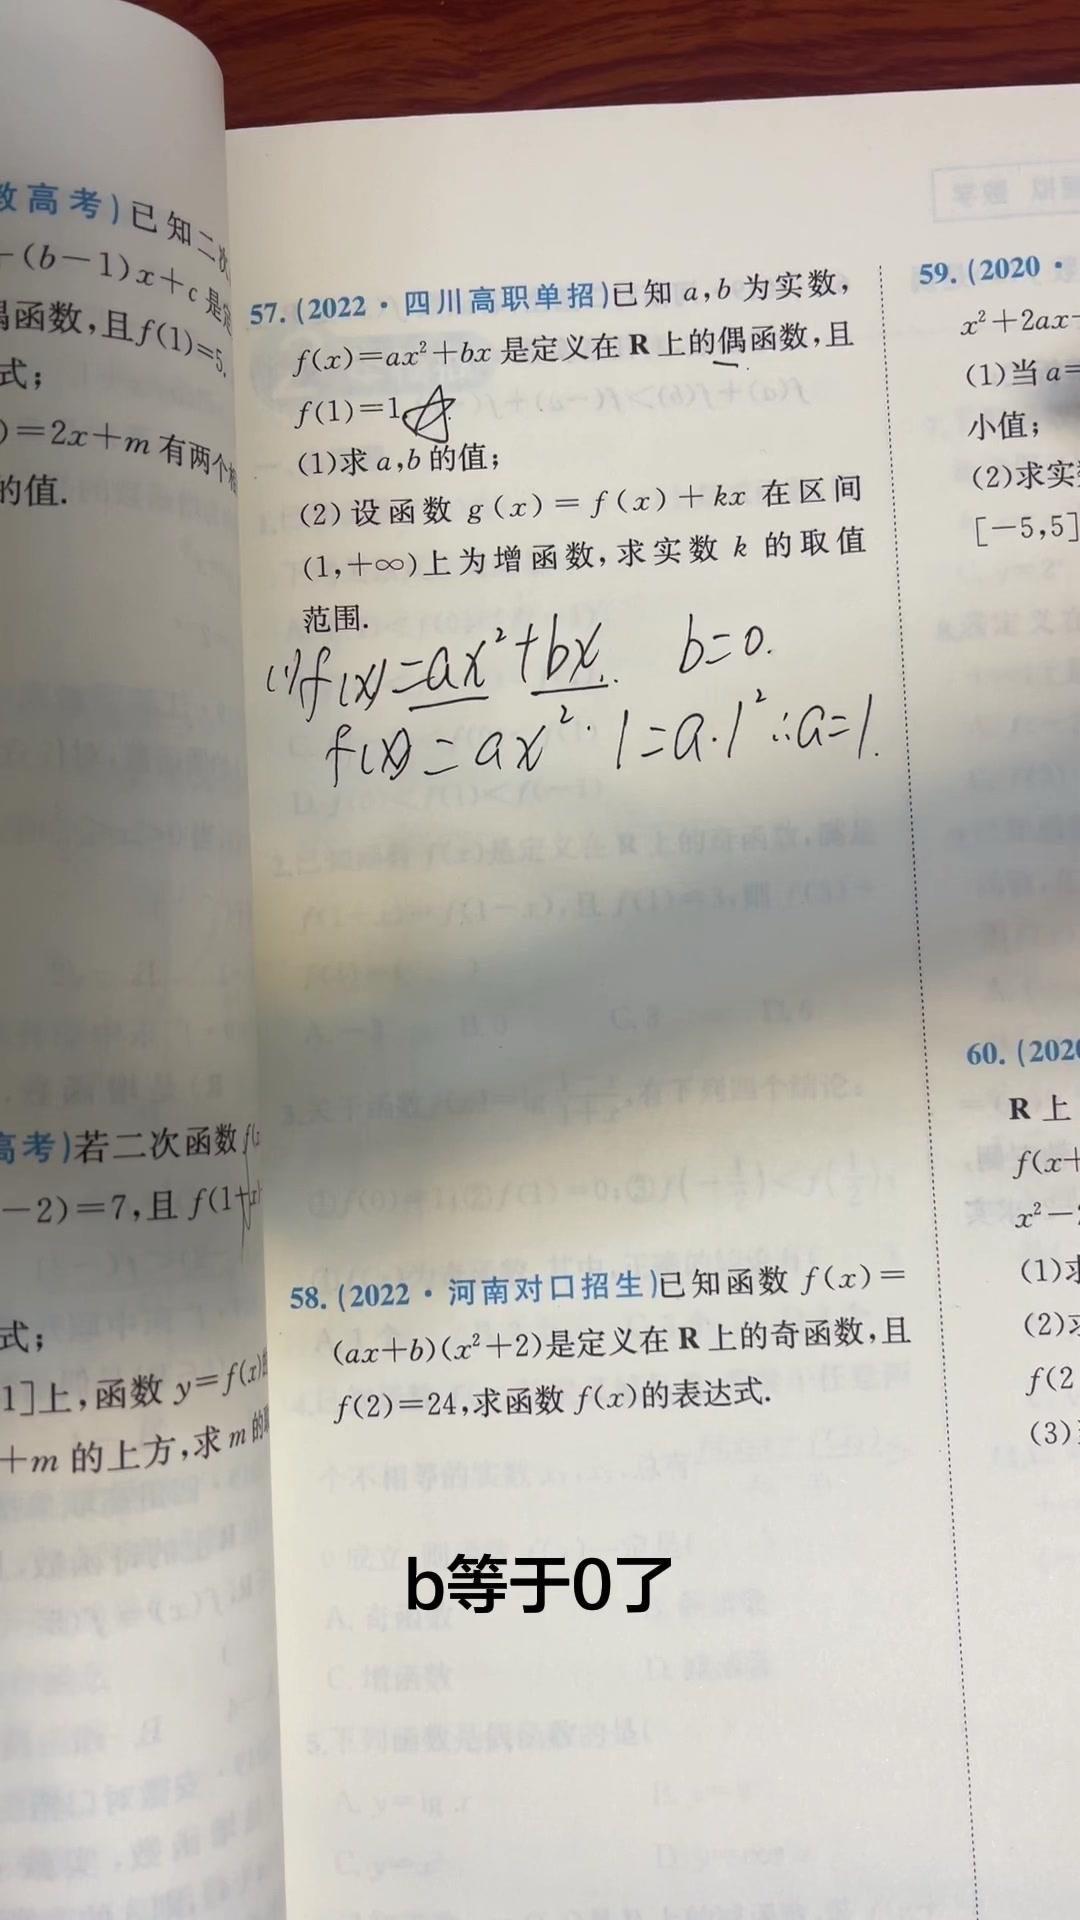 数高考)已知二次
-(b-1)x+c是定
偶函数,且f(1)=5.
式;
)=2x+m有两个
的值.
高考)若二次函数f(
-2)=7,且f(1+x)
式;
1]上,函数y=f(x)的
+m的上方,求m的
57.(2022·四川高职单招)已知a,b为实数,
f(x)=ax²+bx是定义在R上的偶函数,且
f(1)=1.
(1)求a,b的值;
(2)设函数g(x)=f(x)+kx在区间
(1,+∞)上为增函数,求实数k的取值
范围.
(1)f(x)=ax²+bx. b=0.
f(x)=ax². 1=a·1² ∴a=1.
58.(2022·河南对口招生)已知函数f(x)=
(ax+b)(x²+2)是定义在R上的奇函数,且
f(2)=24,求函数f(x)的表达式.
b等于0了
59.(2020·
x²+2ax-
(1)当a=
小值;
(2)求实
[-5,5]
60.(202
R上
f(x+
x²-
(1)求
(2)
f(2
(3)